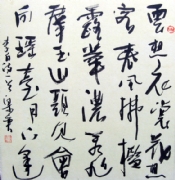 雲想衣裳花想
容春風拂檻
露華濃若非
羣玉山頭見會
向瑤臺月下逢
李白詩